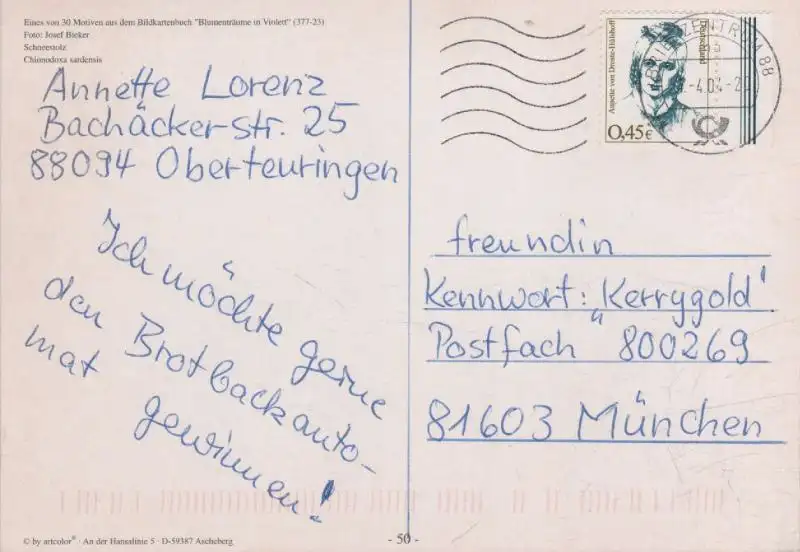 Eines von 30 Motiven aus dem Bildkartenbuch "Blumenträume in Violett" (377-23)
Foto: Josef Bieker
Schneestolz
Chionodoxa sardensis
Annette Lorenz
Bachäckerstr. 25
88094 Oberteuringen
Ich möchte gerne
den Brotbackauto-
mat gewinnen!
Annette von Droste-Hülshoff
Deutschland
0,45€
BRIEFZENTRUM 88
-4.04-2
freundin
Kennwort: „Kerrygold'
Postfach 800269
81603 München
© by artcolor® · An der Hansalinie 5 · D-59387 Ascheberg
- 50 -